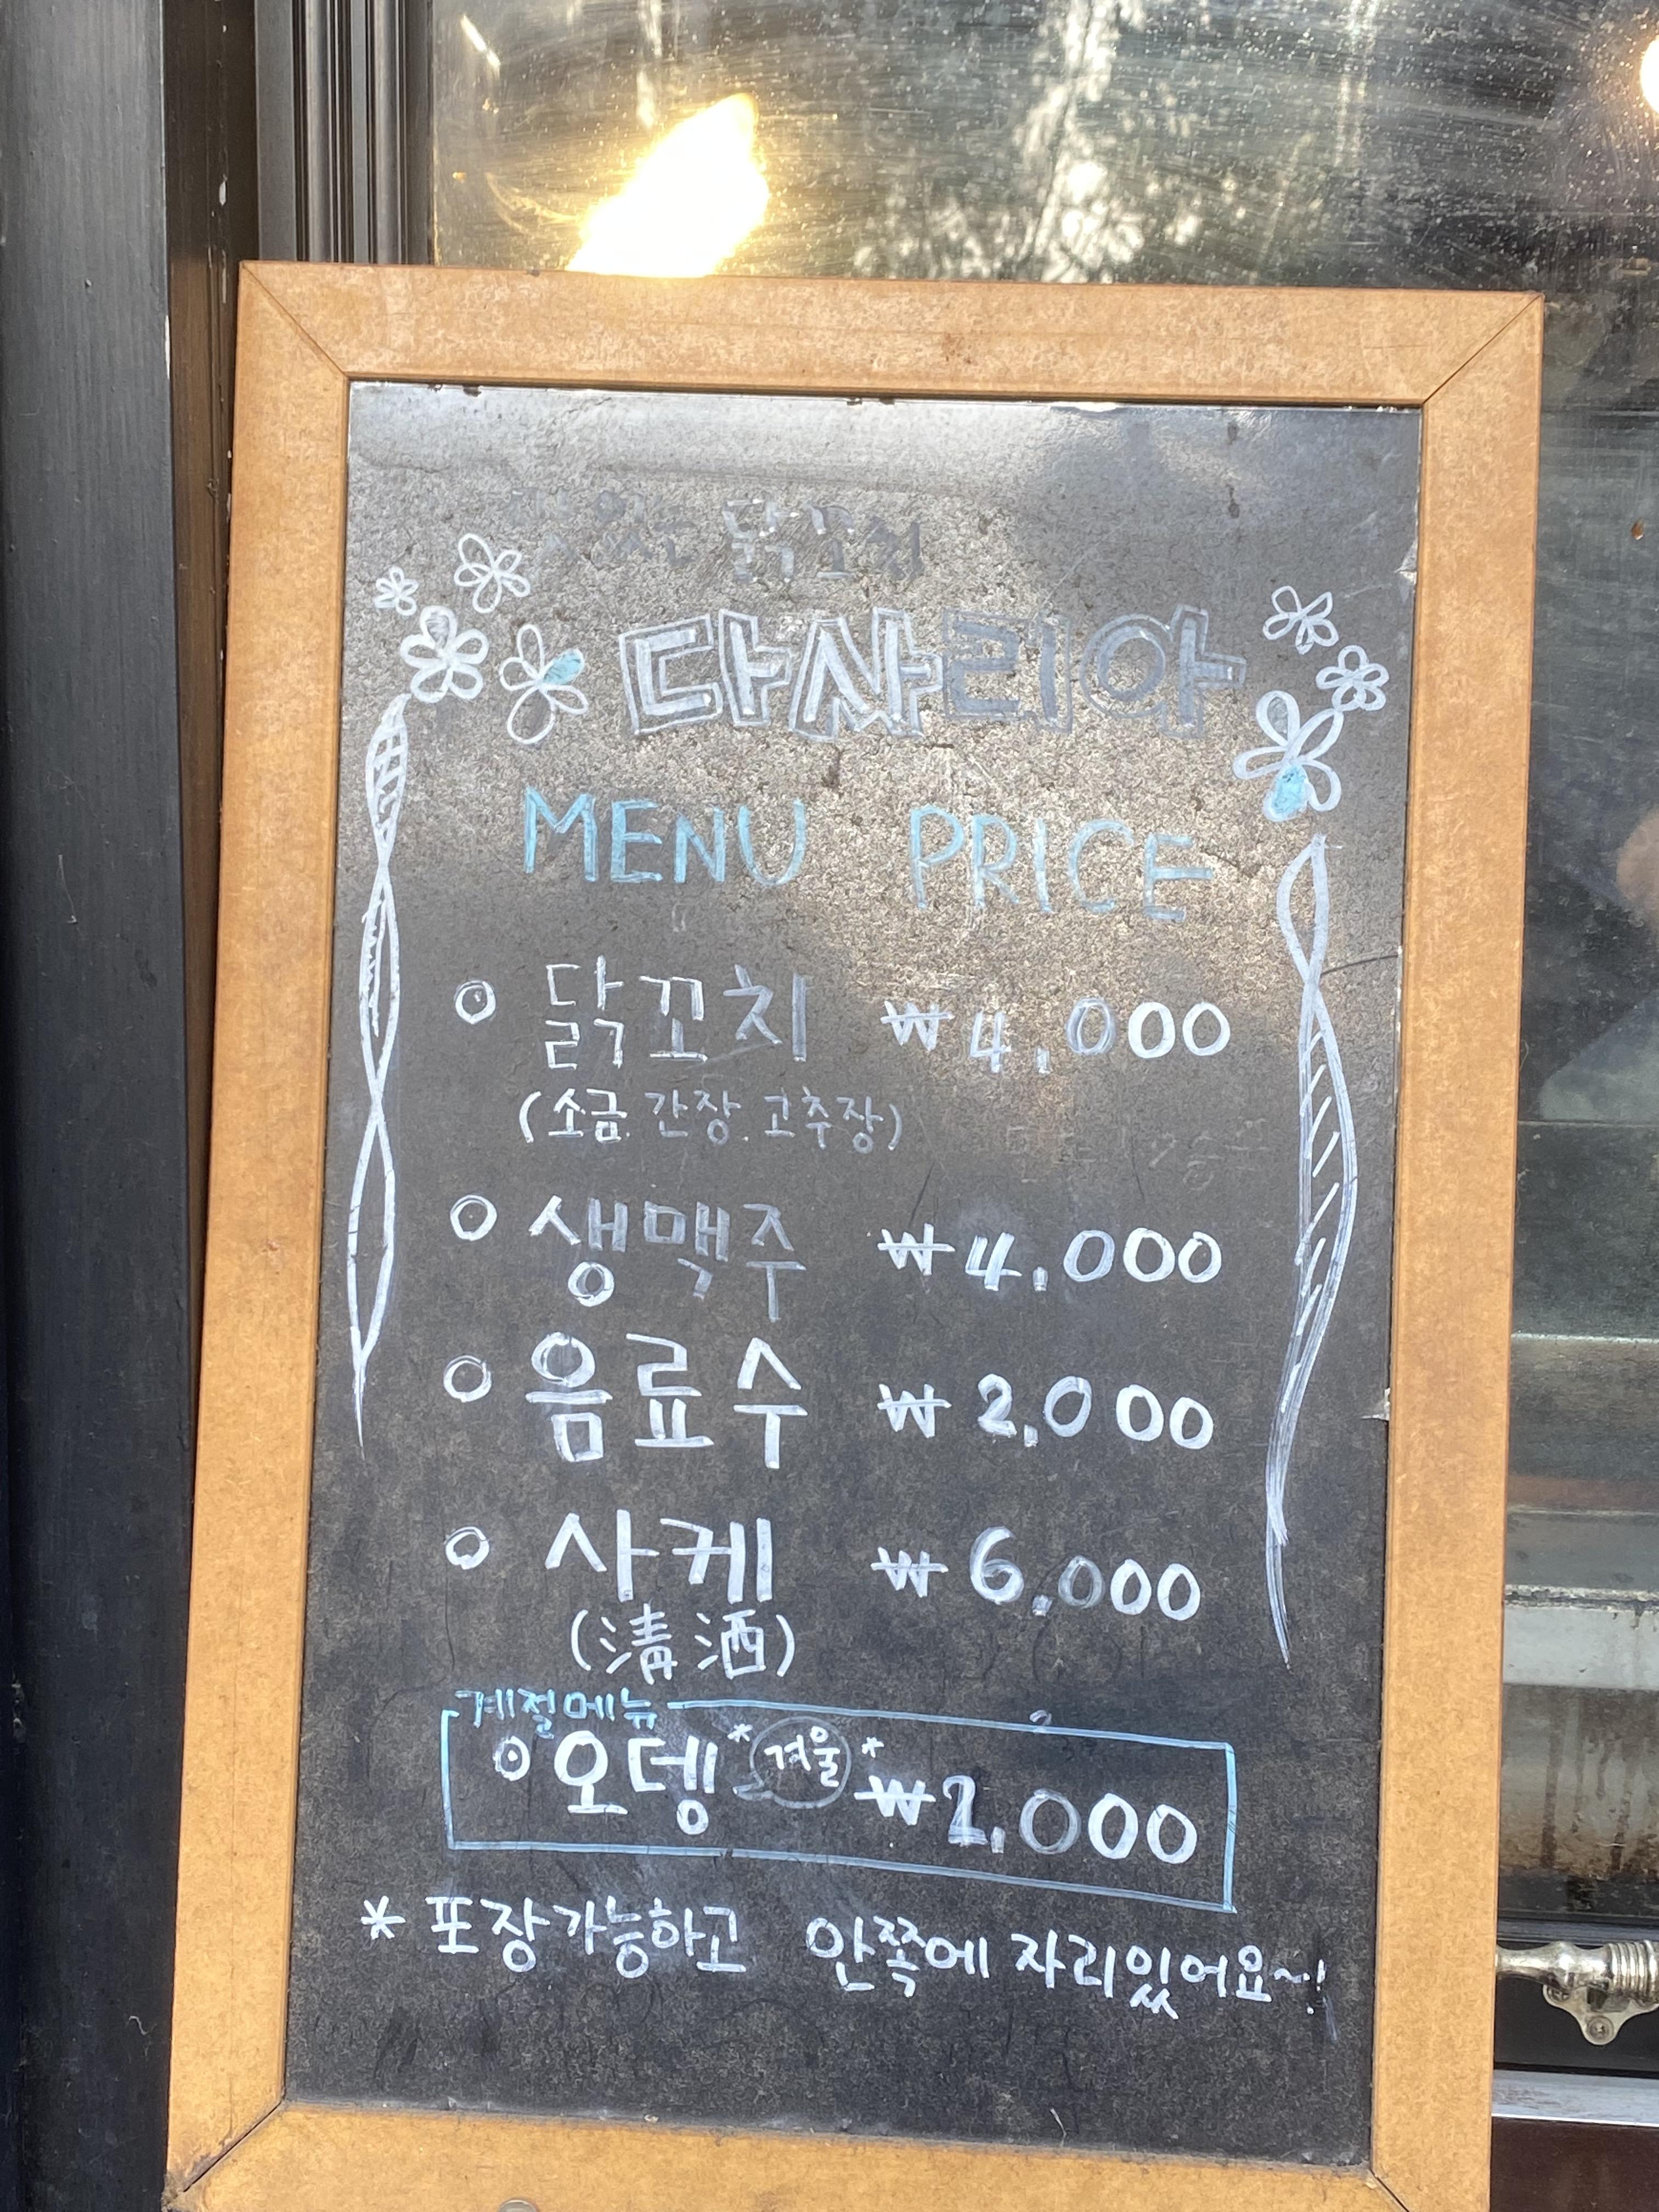 맛있는 닭꼬치
다사리아
MENU PRICE
닭꼬치 ₩4,000
(소금. 간장. 고추장)
생맥주 ₩4,000
음료수 ₩2,000
사케 ₩6,000
(清酒)
계절메뉴
오뎅 *겨울* ₩2,000
* 포장가능하고 안쪽에 자리있어요~!